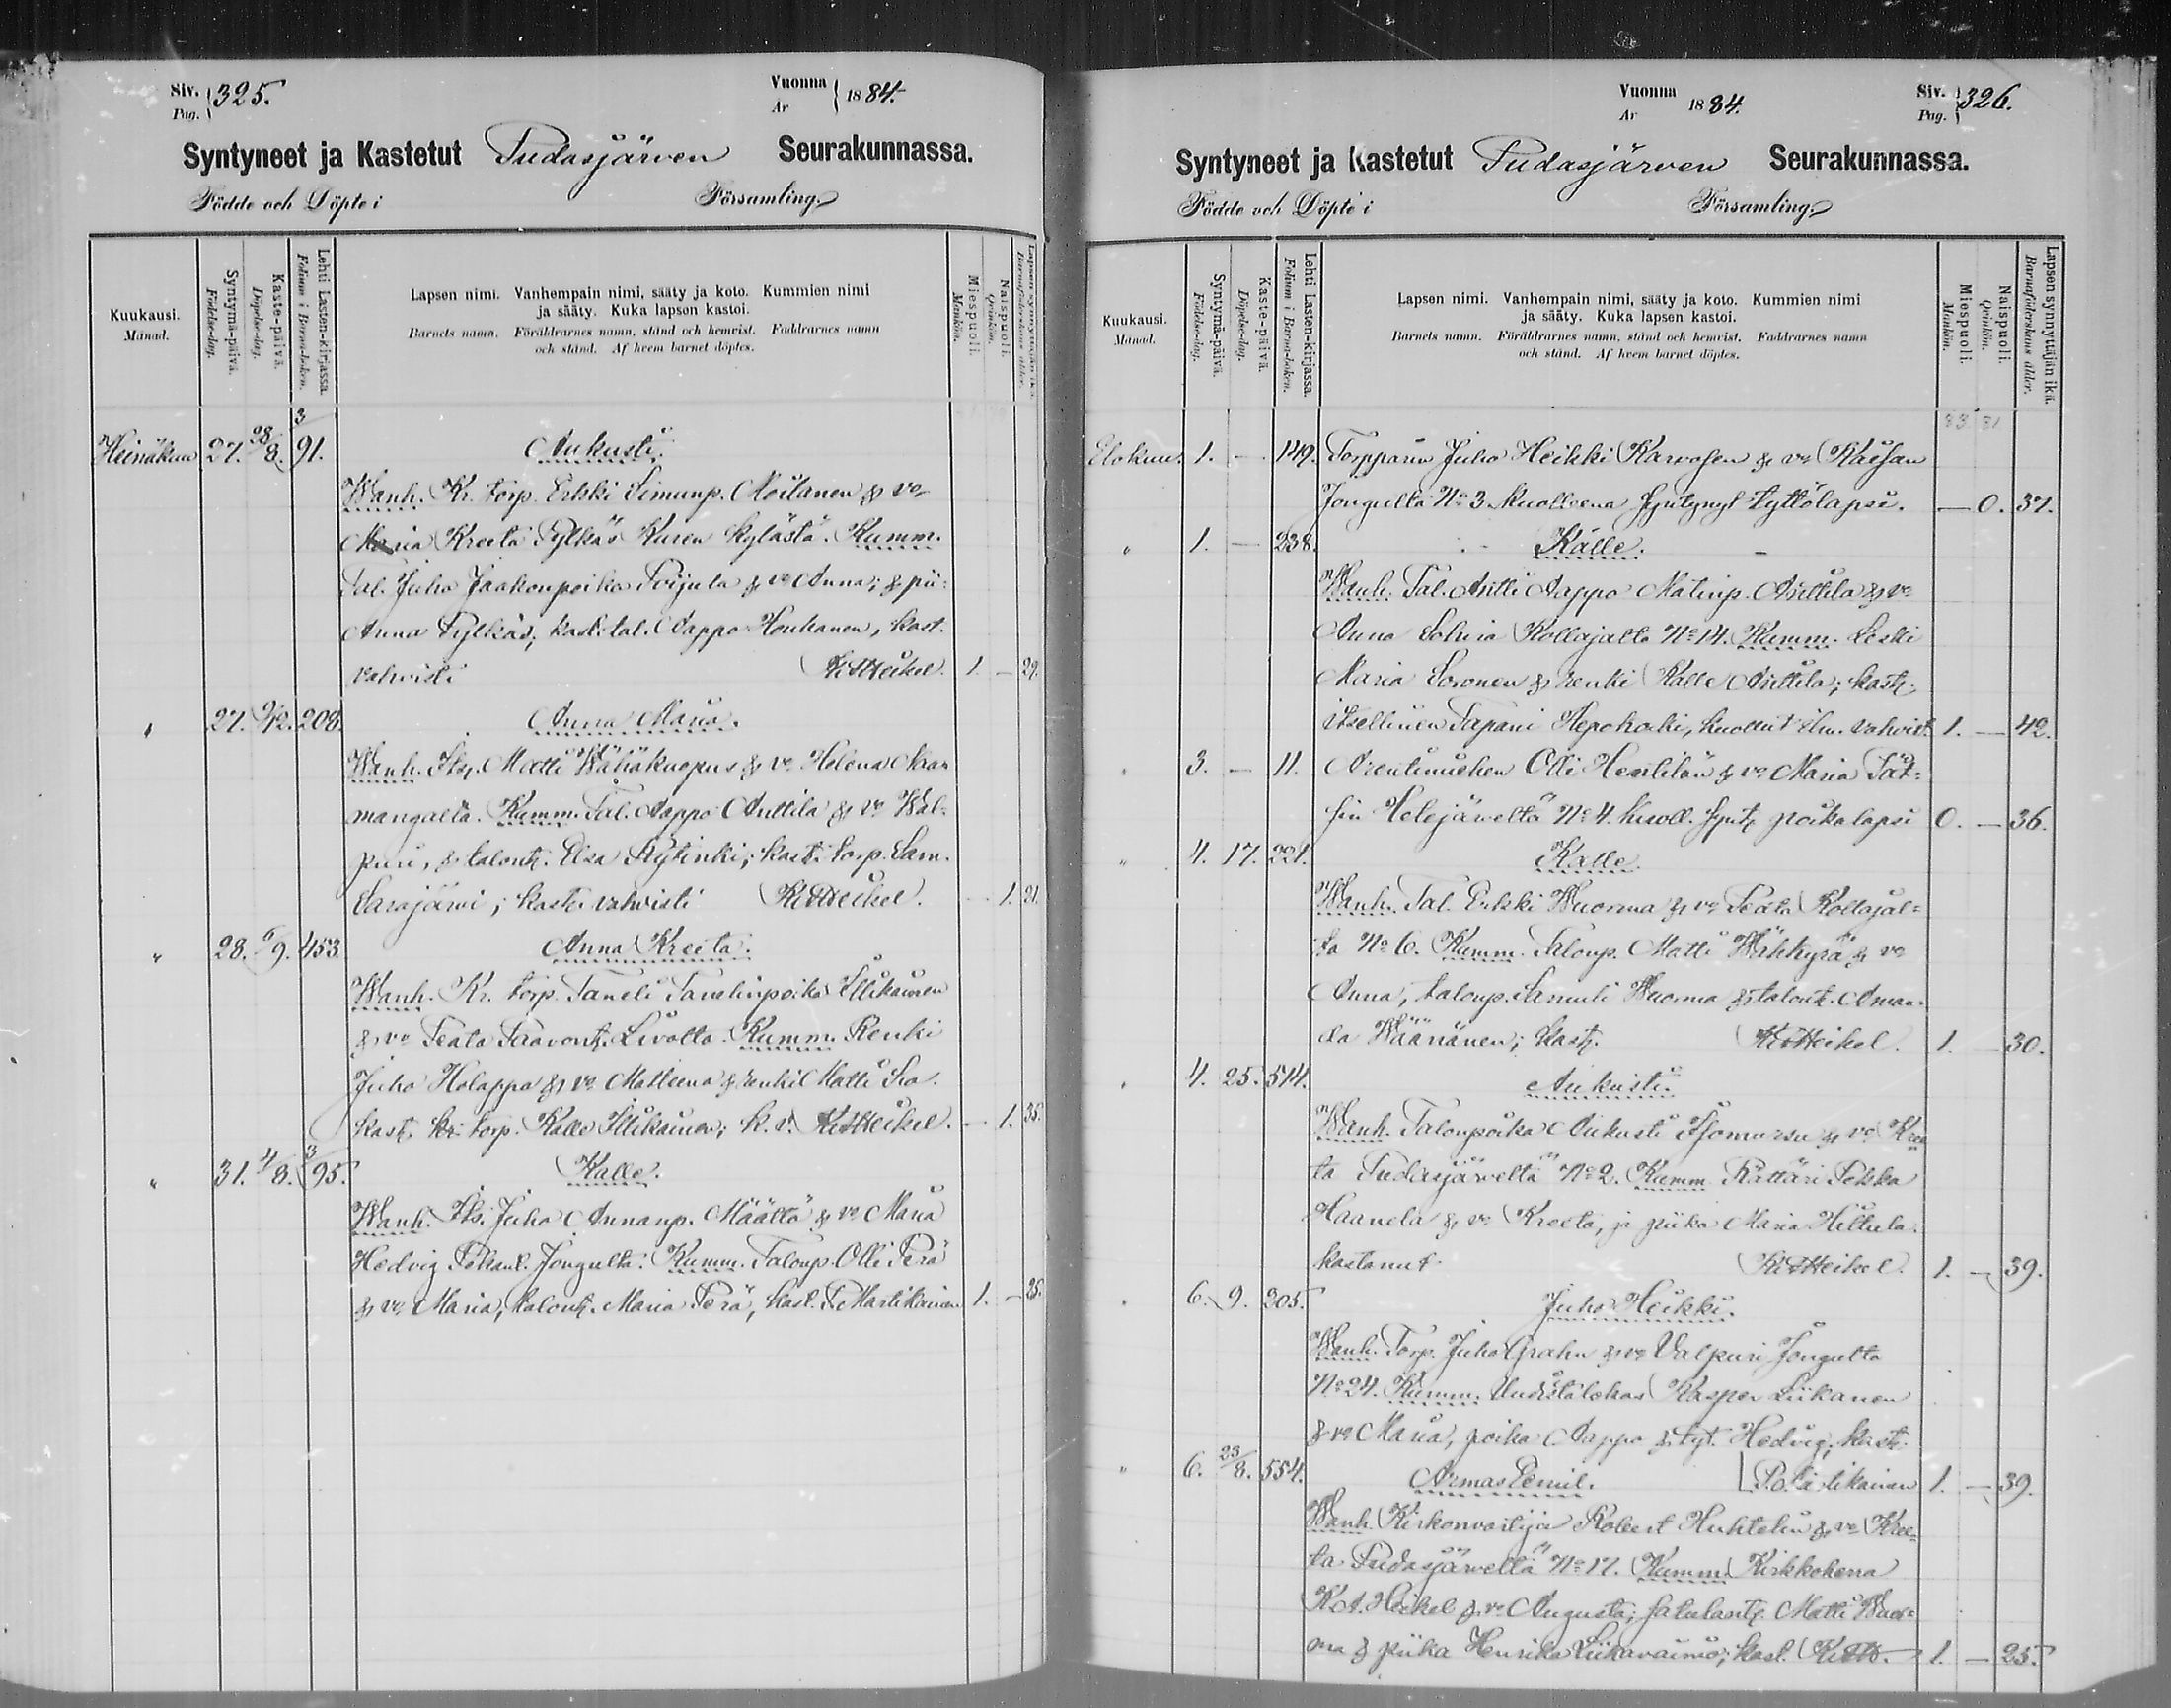 Siv. 325.
Pag.
Vuonna 1884.
Ar
Syntyneet ja Kastetut Pudasjärven Seurakunnassa.
Födde och Döpte i Församling.
Kuukausi.
Månad.
Syntymä-päivä.
Födelse-dag.
Kaste-päivä.
Döpelse-dag.
Lehti Lasten-kirjassa.
Folium i Barna-boken.
Lapsen nimi. Vanhempain nimi, sääty ja koto. Kummien nimi
ja sääty. Kuka lapsen kastoi.
Barnets namn. Föräldrarnes namn, stånd och hemvist. Faddrarnes namn
och stånd. Af hvem barnet döptes.
Miespuoli.
Mankön.
Naispuoli.
Qvinkön.
Lapsen synnyttäjän ikä.
Barnaföderskans ålder.
Heinäkuu 27. 28/8. 3/91. Aukusti.
Wanh. Kr. torp. Erkki Simunp. Moilanen & vo
Maria Kreeta Pylkäs Kuren kylästä. Kumm.
Tal. Juho Jaakonpoika Törjula & vo Anna; & pii-
Anna Pylkäs; kast. tal. Aappo Honkanen, kast.
vahvisti KAHeikel. 1. — 29.
" 27. 9/12. 208. Anna Maria.
Wanh. Its. Matti Wähäkuopus & vo Helena Naa-
mangalta. Kumm. Tal. Aappo Anttila & vo Wal-
puri, & talont. Elsa Stytinki; kasti torp. Sam.
Sarajärvi; kast. vahvisti KAHeikel. 1. 21.
" 28. 6/9. 453. Anna Kreeta.
Wanh. Kr. torp. Taneli Tanelinpoika Illikainen
& vo Peata Paavont. Livolta. Kumm. Renki
Juho Holappa & vo Matleena & renki Matti Sia.
kast. kr. torp. Kalle Illikainen; k. v. KAHeikel. — 1. 35.
" 31. 4/8. 3/95. Kalle.
Wanh. Its. Juho Annanp. Määttä & vo Maria
Hedvig Jongulta. Kumm. Taloup. Olli Perä
& vo Maria, talont. Maria Perä, kast. PMartikainen 1. — 25.
Vuonna 1884.
Ar
Siv. 326.
Pag.
Syntyneet ja Kastetut Pudasjärven Seurakunnassa.
Födde och Döpte i Församling.
Kuukausi.
Månad.
Syntymä-päivä.
Födelse-dag.
Kaste-päivä.
Döpelse-dag.
Lehti Lasten-kirjassa.
Folium i Barna-boken.
Lapsen nimi. Vanhempain nimi, sääty ja koto. Kummien nimi
ja sääty. Kuka lapsen kastoi.
Barnets namn. Föräldrarnes namn, stånd och hemvist. Faddrarnes namn
och stånd. Af hvem barnet döptes.
Miespuoli.
Mankön.
Naispuoli.
Qvinkön.
Lapsen synnyttäjän ikä.
Barnaföderskans ålder.
33 31
Elokuu. 1. — 149. Torpparin Juho Heikki Karvosen & vo Kaisan
Jongulta No 3 kuolleena syntynyt tyttölapsi. — 0. 37.
" 1. — 238. Kalle.
Wanh. Tal. Antti Aappo Matinp. Anttila & vo
Anna Sohvia Kollajalta No 14. Kumm. Leski
Maria Soronen & renki Kalle Anttila; kast.
itsellinen Tapani Hepokoski, kuollut ilm. vahvist. 1. — 42.
" 3. — 11. Arentimiehen Olli Hentilän & vo Maria Tät-
sin Hetejärveltä No 4. kuoll. synt. poikalapsi 0. — 36.
" 4. 17. 221. Kalle.
Wanh. Tal. Erkki Wuorma & vo Peata Kollajal-
ta No 6. Kumm. Taloup. Matti Wihkyrä & vo
Anna, taloup. Samuli Wuorma & talont. Aman-
da Wäänänen; kast. KAHeikel. 1. 30.
" 4. 25. 514. Aukusti.
Wanh. Talonpoika Aukusti Iijomursu & vo Kree-
ta Pudasjärveltä No 2. Kumm. Rättäri Pekka
Haanela & vo Kreeta, ja piika Maria Hiltula.
kastanut KAHeikel. 1. — 39.
" 6. 9. 205. Juho Heikki.
Wanh. Torp. Juho Grahn & vo Valpuri Jongulta
No 24. Kumm. Uudistalokas Kasper Liikanen
& vo Maria, poika Aappo & tyt. Hedvig; kast.
" 6. 23/8. 554. Armas Eemil. 1. — 39.
Wanh. Kirkonvartija Robert Huhtelin & vo Kree-
ta Pudasjärveltä No 17. Kumm. Kirkkoherra
K.A. Heikel & vo Augusta; satulant. Matti Wuor-
ma & piika Henrika Liikavainio; kast. KAH. 1. — 25.